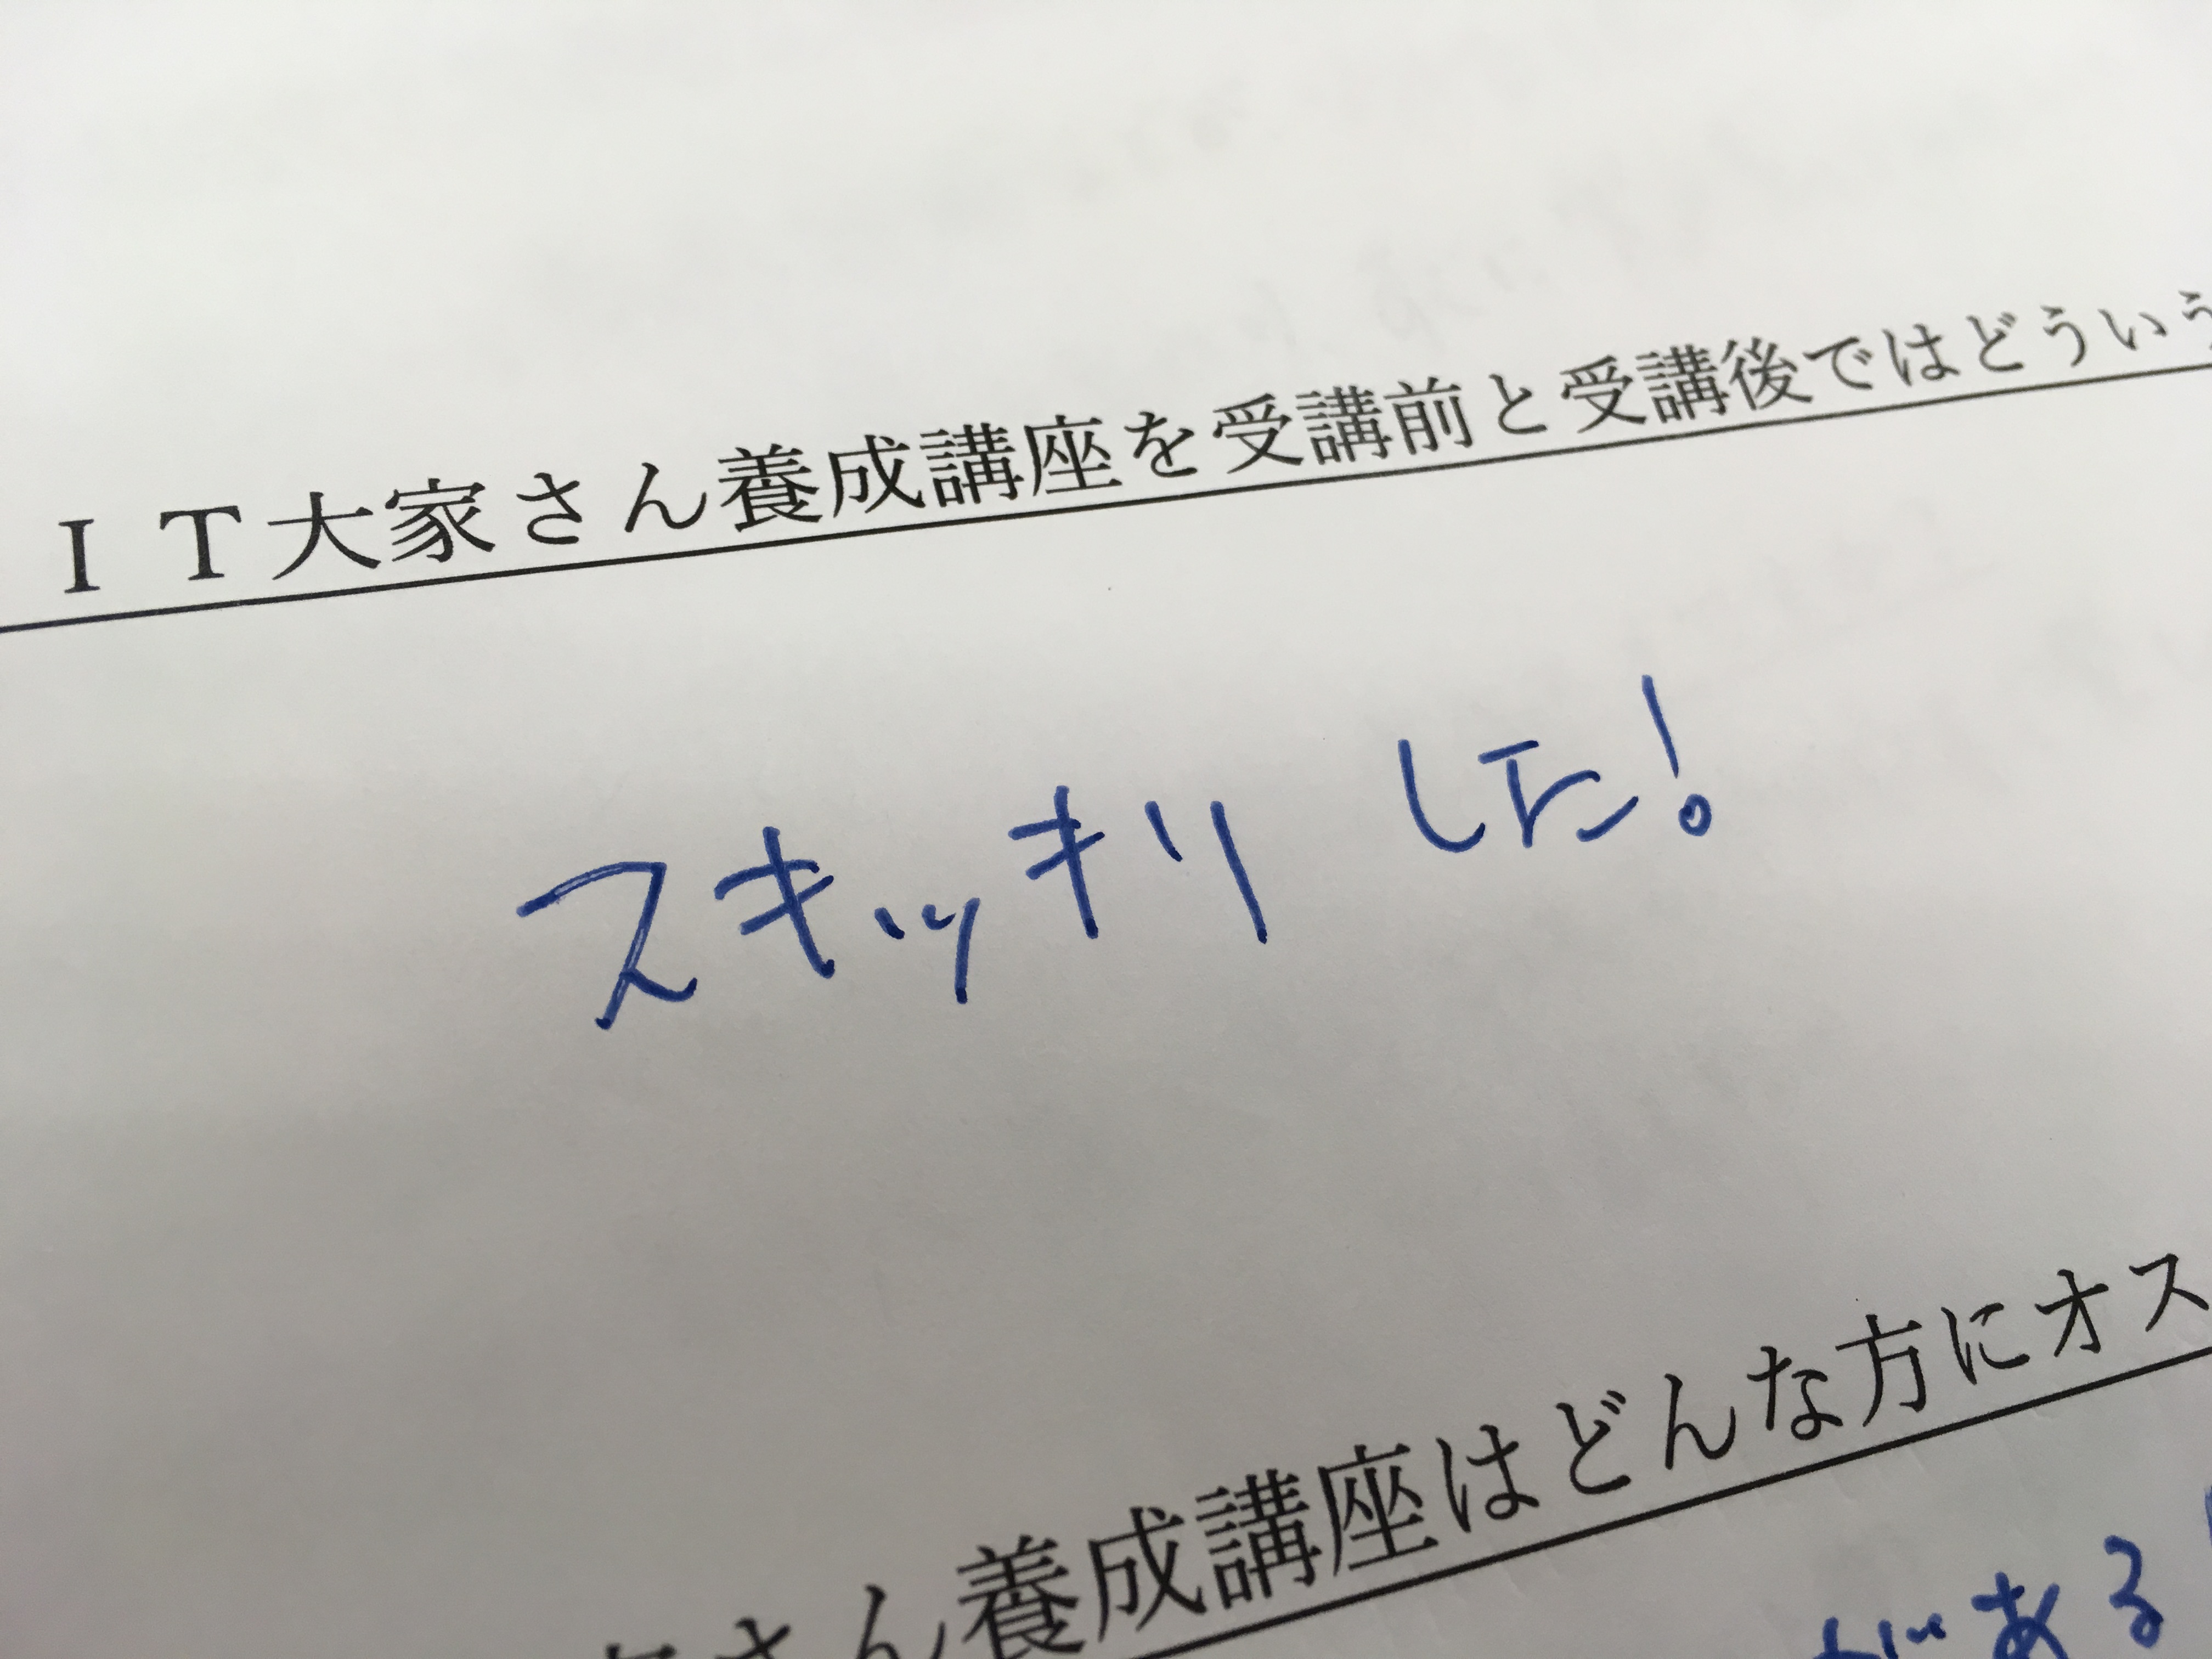 ＩＴ大家さん養成講座を受講前と受講後ではどういう
スキッキリ した!
さん養成講座はどんな方にオス
がある